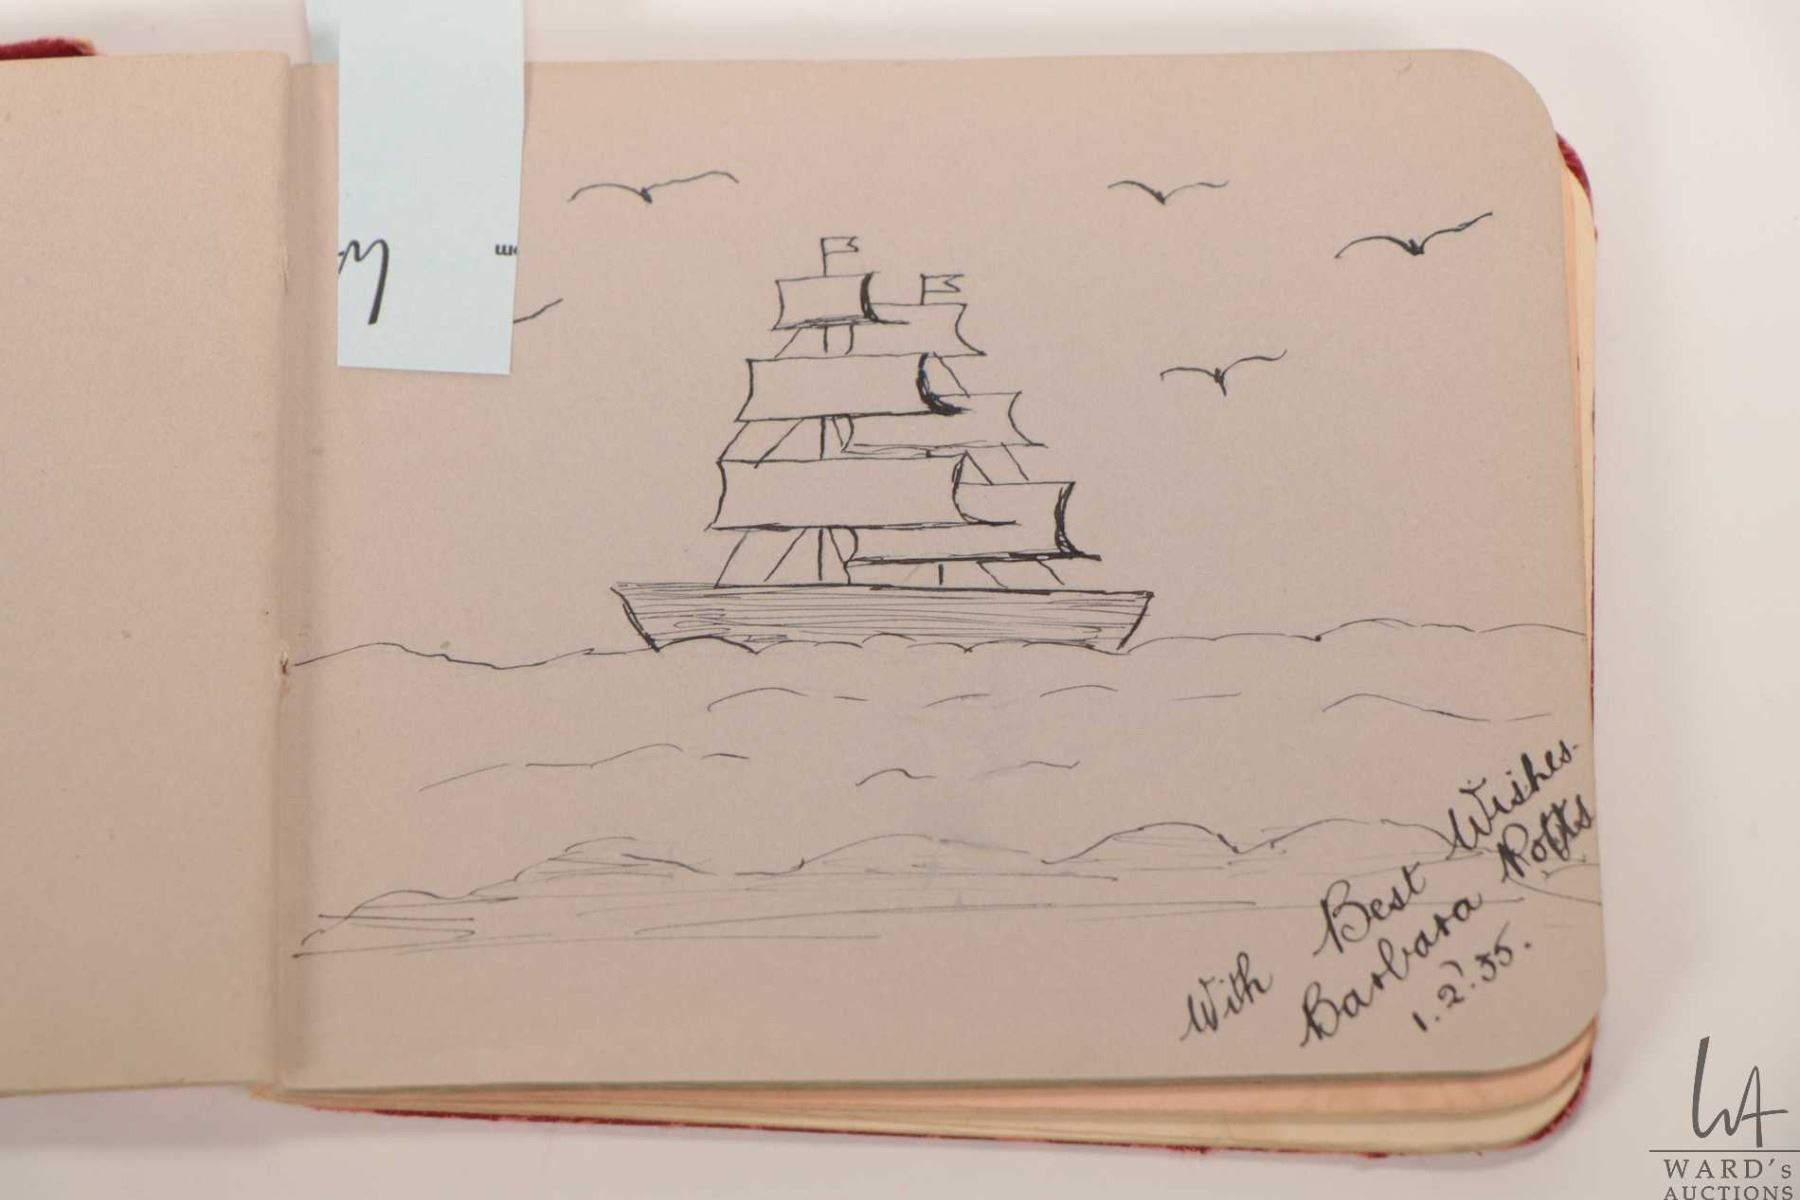 With Best Wishes.
Barbara Potts
1.2.55.
WARD's
AUCTIONS